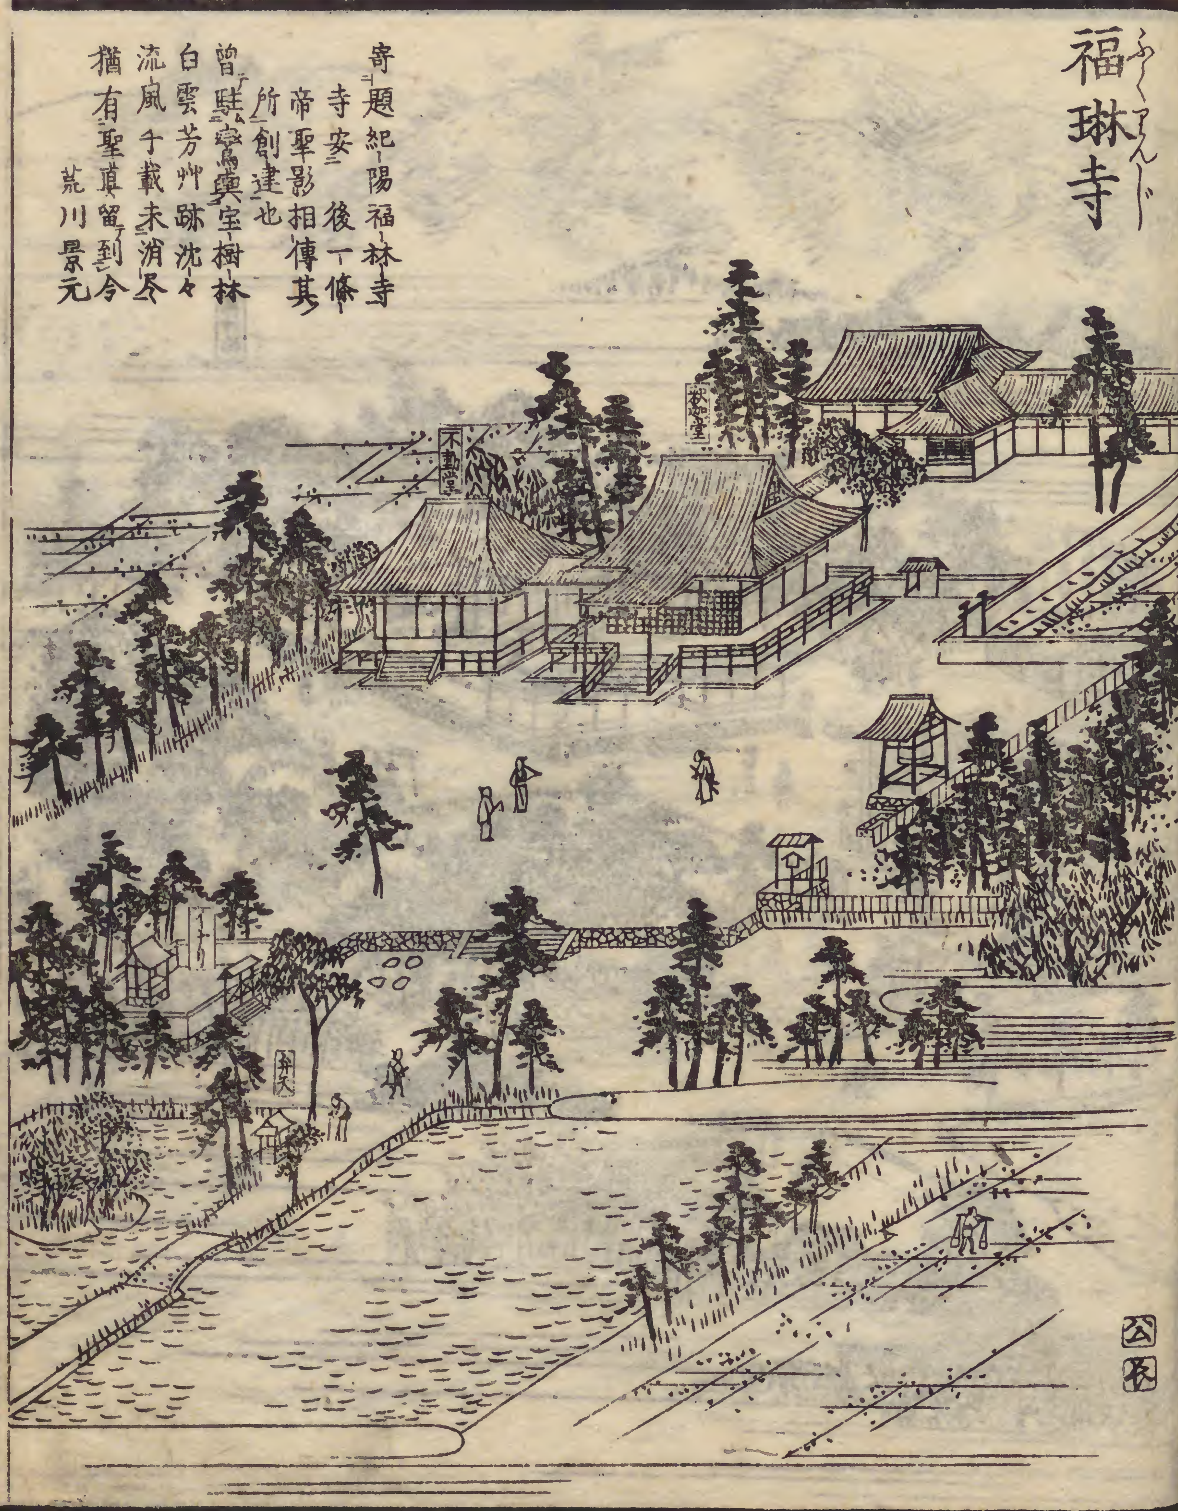 福琳寺
ふくりんじ
寄題紀陽福林寺
寺安 後一條
帝聖影相傳其
所創建也
曽駐鸞輿宝樹林
白雲芳艸跡沈々
流風千載未消尽
猶有聖真留到今
荒川景元
釈迦堂
不動堂
弁天
公
長